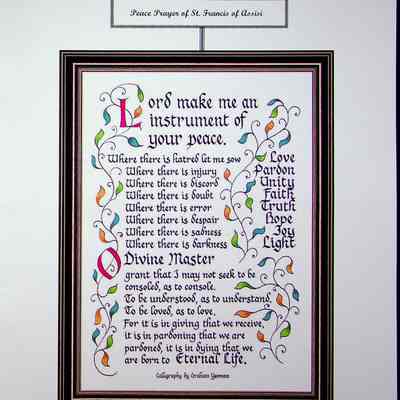 Peace Prayer of St. Francis of Assisi
Lord make me an
instrument of
your peace.
Where there is hatred let me sow Love
Where there is injury Pardon
Where there is discord Unity
Where there is doubt Faith
Where there is error Truth
Where there is despair Hope
Where there is sadness Joy
Where there is darkness Light
O Divine Master
grant that I may not seek to be
consoled, as to console.
To be understood, as to understand,
To be loved, as to love.
For it is in giving that we receive,
it is in pardoning that we are
pardoned, it is in dying that we
are born to Eternal Life.
Calligraphy by